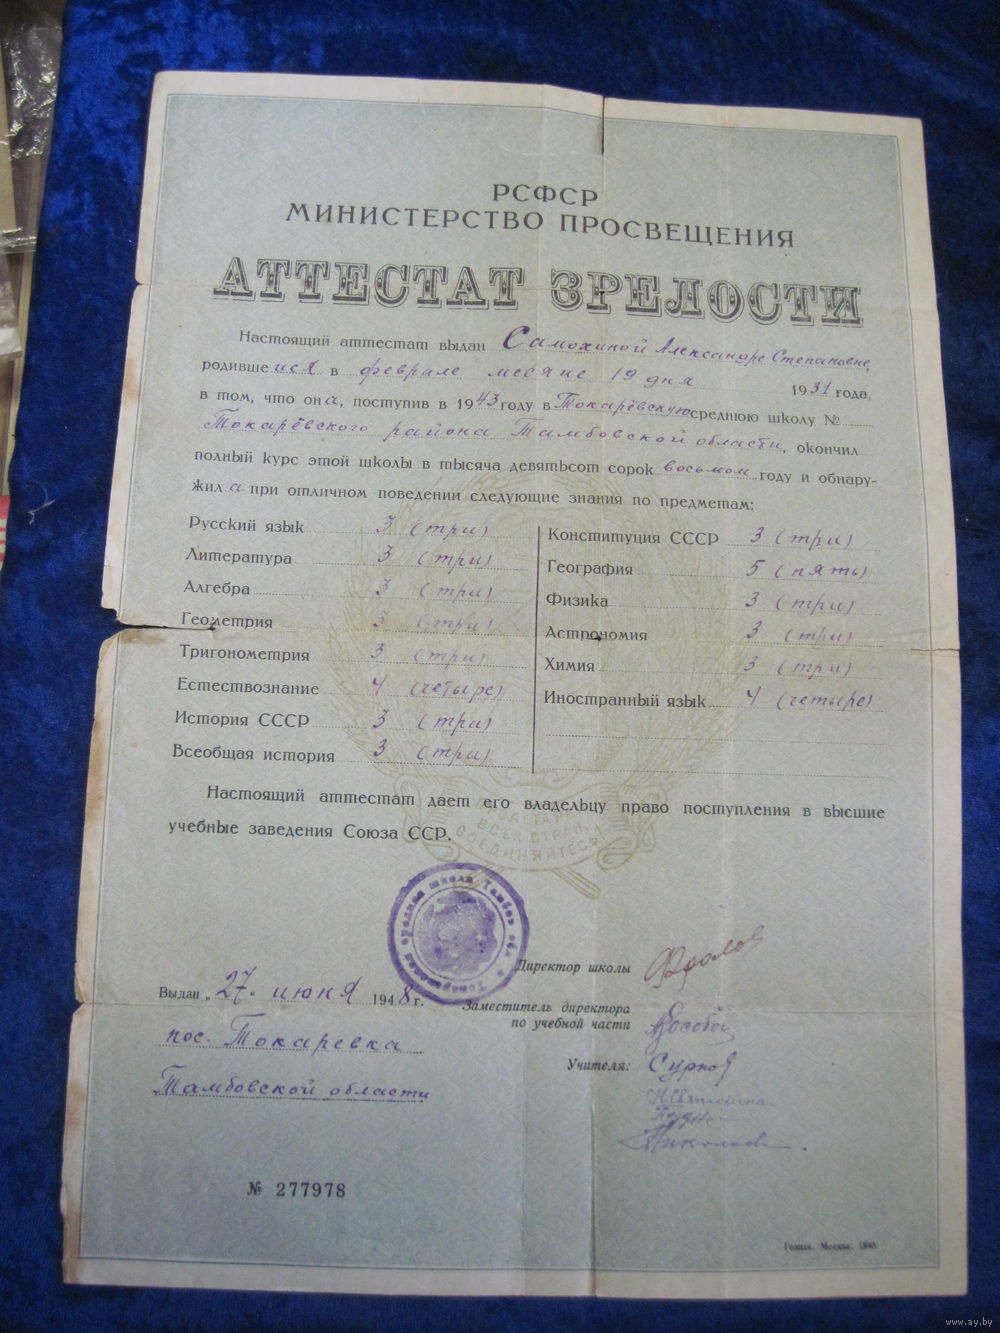 РСФСР
МИНИСТЕРСТВО ПРОСВЕЩЕНИЯ
АТТЕСТАТ ЗРЕЛОСТИ
Настоящий аттестат выдан Самохиной Александре Степановне,
родившейся в феврале месяце 19 дня 1931 года,
в том, что она, поступив в 1943 году в Токарёвскую среднюю школу №
Токарёвского района Тамбовской области, окончил
полный курс этой школы в тысяча девятьсот сорок восьмом году и обнару-
жила при отличном поведении следующие знания по предметам:
Русский язык 3 (три)
Литература 3 (три)
Алгебра 3 (три)
Геометрия 3 (три)
Тригонометрия 3 (три)
Естествознание 4 (четыре)
История СССР 3 (три)
Всеобщая история 3 (три)
Конституция СССР 3 (три)
География 5 (пять)
Физика 3 (три)
Астрономия 3 (три)
Химия 3 (три)
Иностранный язык 4 (четыре)
Настоящий аттестат дает его владельцу право поступления в высшие
учебные заведения Союза ССР.
ПРОЛЕТАРИИ
ВСЕХ СТРАН,
СОЕДИНЯЙТЕСЬ!
Токаревская средняя школа Тамбов. обл.
Директор школы Фролов
Выдан „27" июня 1948 г.
Заместитель директора
по учебной части
пос. Токаревка
Учителя: Сурков
Тамбовской области
Николаев
№ 277978
Гознак. Москва. 1948.
www.ay.by